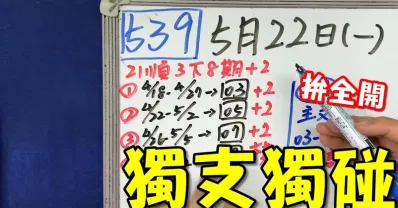 539 5月22日(一)
21順3下8期+2
① 4/18-4/27→03+2
② 4/22-5/2→05+2
③ 4/26-5/5→07+2
拚全開
03-
獨支獨碰